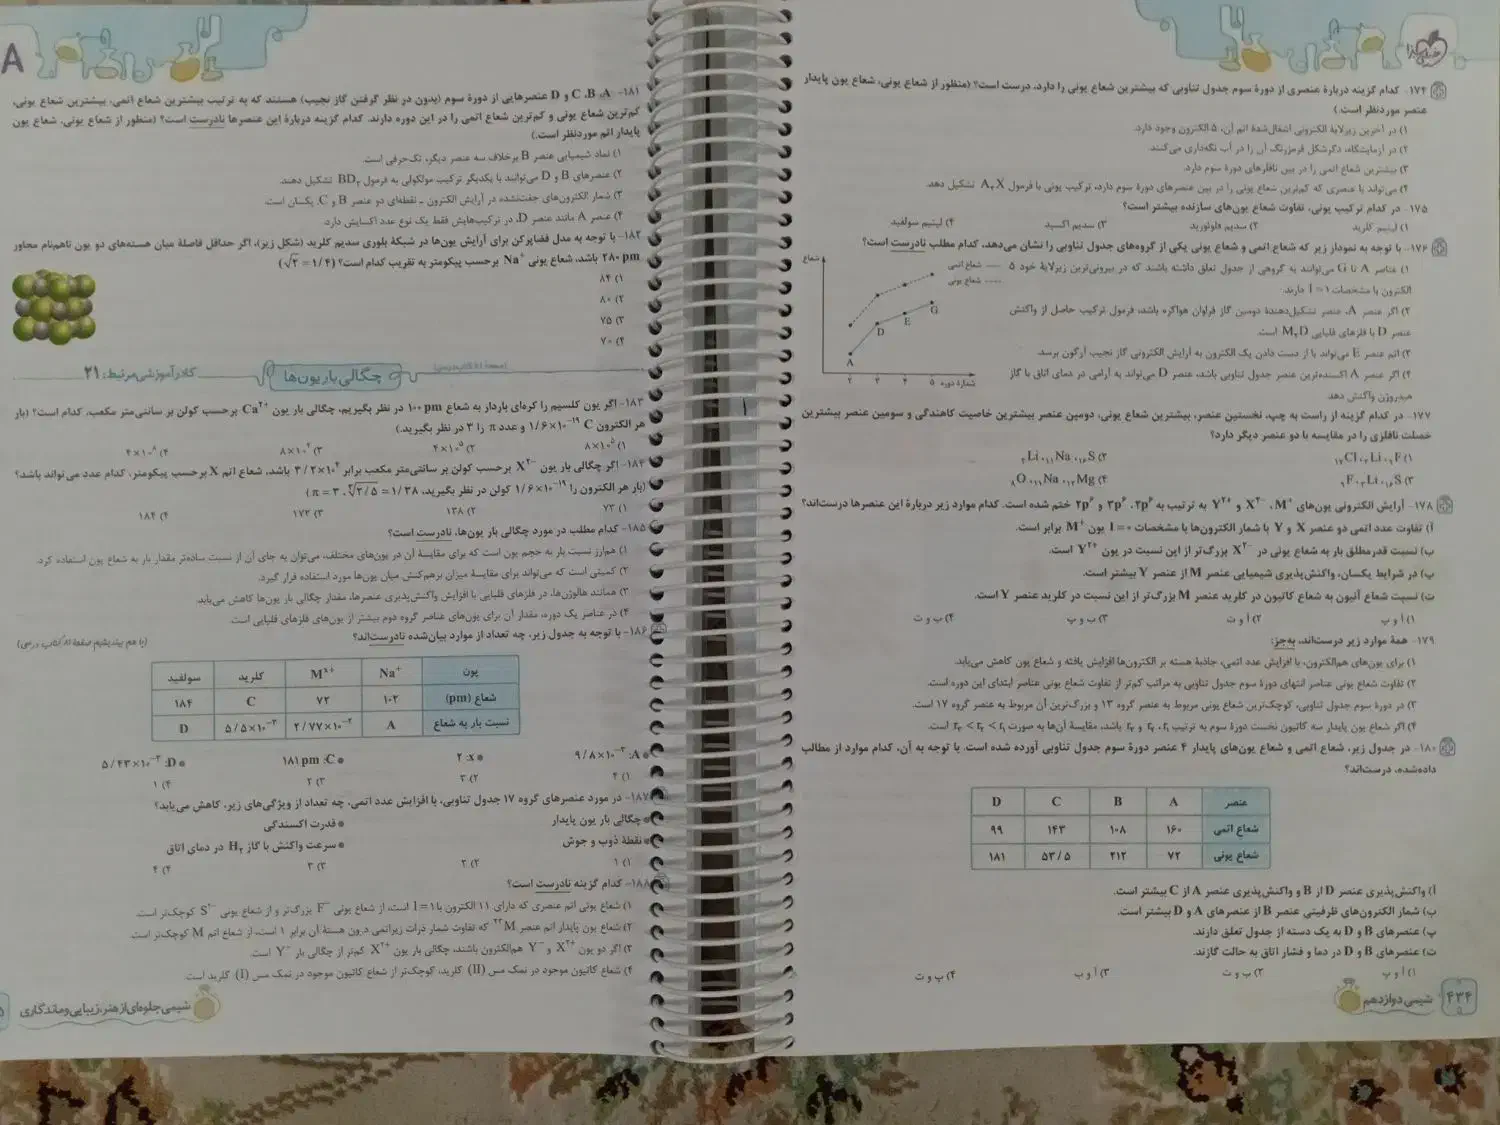 ۱۷۴- کدام گزینه دربارهٔ عنصری از دورهٔ سوم جدول تناوبی که بیشترین شعاع یونی را دارد، درست است؟ (منظور از شعاع یونی، شعاع یون پایدار
عنصر موردنظر است.)
۱) در آخرین زیرلایهٔ الکترونی اشغال‌شدهٔ اتم آن، ۵ الکترون وجود دارد.
۲) در آزمایشگاه، دگرشکل قرمزرنگ آن را در آب نگه‌داری می‌کنند.
۳) بیشترین شعاع اتمی را در بین نافلزهای دورهٔ سوم دارد.
۴) می‌تواند با عنصری که کم‌ترین شعاع یونی را در بین عنصرهای دورهٔ سوم دارد، ترکیب یونی با فرمول A₃X تشکیل دهد.
۱۷۵- در کدام ترکیب یونی، تفاوت شعاع یون‌های سازنده بیشتر است؟
۱) لیتیم کلرید ۲) سدیم فلوئورید ۳) سدیم اکسید ۴) لیتیم سولفید
۱۷۶- با توجه به نمودار زیر که شعاع اتمی و شعاع یونی یکی از گروه‌های جدول تناوبی را نشان می‌دهد، کدام مطلب نادرست است؟
۱) عناصر A تا G می‌توانند به گروهی از جدول تعلق داشته باشند که در بیرونی‌ترین زیرلایهٔ خود ۵
الکترون با مشخصات l = ۱ دارند.
۲) اگر عنصر A، عنصر تشکیل‌دهندهٔ دومین گاز فراوان هواکره باشد، فرمول ترکیب حاصل از واکنش
عنصر D با فلزهای قلیایی M₂D است.
۳) اتم عنصر E می‌تواند با از دست دادن یک الکترون به آرایش الکترونی گاز نجیب آرگون برسد.
۴) اگر عنصر A اکسنده‌ترین عنصر جدول تناوبی باشد، عنصر D می‌تواند به آرامی در دمای اتاق با گاز
هیدروژن واکنش دهد.
شعاع
شعاع اتمی
شعاع یونی
A D E G
۲ ۳ ۴ ۵ شمارهٔ دوره
۱۷۷- در کدام گزینه از راست به چپ، نخستین عنصر، بیشترین شعاع یونی، دومین عنصر بیشترین خاصیت کاهندگی و سومین عنصر بیشترین
خصلت نافلزی را در مقایسه با دو عنصر دیگر دارد؟
۱) ₁₇Cl ،₃Li ،₉F ۲) ₃Li ،₁₁Na ،₁₆S
۳) ₉F ،₃Li ،₁₆S ۴) ₈O ،₁₁Na ،₁₂Mg
۱۷۸- آرایش الکترونی یون‌های M⁺، X²⁻ و Y²⁺ به ترتیب به ۲p⁶، ۳p⁶ و ۲p⁶ ختم شده است. کدام موارد زیر دربارهٔ این عنصرها درست‌اند؟
آ) تفاوت عدد اتمی دو عنصر X و Y با شمار الکترون‌ها با مشخصات l = ۰ یون M⁺ برابر است.
ب) نسبت قدرمطلق بار به شعاع یونی در X²⁻ بزرگ‌تر از این نسبت در یون Y²⁺ است.
پ) در شرایط یکسان، واکنش‌پذیری شیمیایی عنصر M از عنصر Y بیشتر است.
ت) نسبت شعاع آنیون به شعاع کاتیون در کلرید عنصر M بزرگ‌تر از این نسبت در کلرید عنصر Y است.
۱) آ و پ ۲) آ و ت ۳) ب و پ ۴) ب و ت
۱۷۹- همهٔ موارد زیر درست‌اند، به‌جز:
۱) برای یون‌های هم‌الکترون، با افزایش عدد اتمی، جاذبهٔ هسته بر الکترون‌ها افزایش یافته و شعاع یون کاهش می‌یابد.
۲) تفاوت شعاع یونی عناصر انتهای دورهٔ سوم جدول تناوبی به مراتب کم‌تر از تفاوت شعاع یونی عناصر ابتدای این دوره است.
۳) در دورهٔ سوم جدول تناوبی، کوچک‌ترین شعاع یونی مربوط به عنصر گروه ۱۳ و بزرگ‌ترین آن مربوط به عنصر گروه ۱۷ است.
۴) اگر شعاع یون پایدار سه کاتیون نخست دورهٔ سوم به ترتیب r₁، r₂ و r₃ باشد، مقایسهٔ آن‌ها به صورت r₃ < r₂ < r₁ است.
۱۸۰- در جدول زیر، شعاع اتمی و شعاع یون‌های پایدار ۴ عنصر دورهٔ سوم جدول تناوبی آورده شده است. با توجه به آن، کدام موارد از مطالب
داده‌شده، درست‌اند؟
عنصر A B C D
شعاع اتمی ۱۶۰ ۱۰۸ ۱۴۳ ۹۹
شعاع یونی ۷۲ ۲۱۲ ۵۳/۵ ۱۸۱
آ) واکنش‌پذیری عنصر D از B و واکنش‌پذیری عنصر A از C بیشتر است.
ب) شمار الکترون‌های ظرفیتی عنصر B از عنصرهای A و D بیشتر است.
پ) عنصرهای B و D به یک دسته از جدول تعلق دارند.
ت) عنصرهای B و D در دما و فشار اتاق به حالت گازند.
۱) آ و پ ۲) ب و ت ۳) آ و ب ۴) پ و ت
۴۳۴ شیمی دوازدهم
A
۱۸۱- A، B، C و D عنصرهایی از دورهٔ سوم (بدون در نظر گرفتن گاز نجیب) هستند که به ترتیب بیشترین شعاع اتمی، بیشترین شعاع یونی،
کم‌ترین شعاع یونی و کم‌ترین شعاع اتمی را در این دوره دارند. کدام گزینه دربارهٔ این عنصرها نادرست است؟ (منظور از شعاع یونی، شعاع یون
پایدار اتم موردنظر است.)
۱) نماد شیمیایی عنصر B برخلاف سه عنصر دیگر، تک‌حرفی است.
۲) عنصرهای B و D می‌توانند با یکدیگر ترکیب مولکولی به فرمول BD₃ تشکیل دهند.
۳) شمار الکترون‌های جفت‌نشده در آرایش الکترون - نقطه‌ای دو عنصر B و C، یکسان است.
۴) عنصر A مانند عنصر D، در ترکیب‌هایش فقط یک نوع عدد اکسایش دارد.
۱۸۲- با توجه به مدل فضاپرکن برای آرایش یون‌ها در شبکهٔ بلوری سدیم کلرید (شکل زیر)، اگر حداقل فاصلهٔ میان هسته‌های دو یون ناهم‌نام مجاور
۲۸۰ pm باشد، شعاع یونی Na⁺ برحسب پیکومتر به تقریب کدام است؟ (√۲ = ۱/۴)
۱) ۸۴
۲) ۸۰
۳) ۷۵
۴) ۷۰
چگالی بار یون‌ها
کادر آموزشی مرتبط: ۲۱
۱۸۳- اگر یون کلسیم را کره‌ای باردار به شعاع ۱۰۰ pm در نظر بگیریم، چگالی بار یون Ca²⁺ برحسب کولن بر سانتی‌متر مکعب، کدام است؟ (بار
هر الکترون ۱/۶×۱۰⁻¹⁹ C و عدد π را ۳ در نظر بگیرید.)
۱) ۸×۱۰⁵ ۲) ۴×۱۰⁵ ۳) ۸×۱۰⁴ ۴) ۴×۱۰⁸
۱۸۴- اگر چگالی بار یون X²⁻ برحسب کولن بر سانتی‌متر مکعب برابر ۳/۲×۱۰⁴ باشد، شعاع اتم X برحسب پیکومتر، کدام عدد می‌تواند باشد؟
(بار هر الکترون را ۱/۶×۱۰⁻¹⁹ کولن در نظر بگیرید، π = ۳ ، ∛۲/۵ = ۱/۳۸)
۱) ۷۳ ۲) ۱۳۸ ۳) ۱۷۳ ۴) ۱۸۴
۱۸۵- کدام مطلب در مورد چگالی بار یون‌ها، نادرست است؟
۱) هم‌ارز نسبت بار به حجم یون است که برای مقایسهٔ آن در یون‌های مختلف، می‌توان به جای آن از نسبت ساده‌تر مقدار بار به شعاع یون استفاده کرد.
۲) کمیتی است که می‌تواند برای مقایسهٔ میزان برهم‌کنش میان یون‌ها مورد استفاده قرار گیرد.
۳) همانند هالوژن‌ها، در فلزهای قلیایی با افزایش واکنش‌پذیری عنصرها، مقدار چگالی بار یون‌ها کاهش می‌یابد.
۴) در عناصر یک دوره، مقدار آن برای یون‌های عناصر گروه دوم بیشتر از یون‌های فلزهای قلیایی است.
۱۸۶- با توجه به جدول زیر، چه تعداد از موارد بیان‌شده نادرست‌اند؟
(با هم بیندیشیم صفحهٔ ۸۱ کتاب درسی)
یون Na⁺ Mˣ⁺ کلرید سولفید
شعاع (pm) ۱۰۲ ۷۲ C ۱۸۴
نسبت بار به شعاع A ۲/۷۷×۱۰⁻² ۵/۵×۱۰⁻³ D
• A: ۹/۸×۱۰⁻³ • x: ۲ • C: ۱۸۱ pm • D: ۵/۴۳×۱۰⁻³
۱) ۴ ۲) ۳ ۳) ۲ ۴) ۱
۱۸۷- در مورد عنصرهای گروه ۱۷ جدول تناوبی، با افزایش عدد اتمی، چه تعداد از ویژگی‌های زیر، کاهش می‌یابد؟
• چگالی بار یون پایدار • قدرت اکسندگی
• نقطهٔ ذوب و جوش • سرعت واکنش با گاز H₂ در دمای اتاق
۱) ۱ ۲) ۲ ۳) ۳ ۴) ۴
۱۸۸- کدام گزینه نادرست است؟
۱) شعاع یونی اتم عنصری که دارای ۱۱ الکترون با l = ۱ است، از شعاع یونی F⁻ بزرگ‌تر و از شعاع یونی S²⁻ کوچک‌تر است.
۲) شعاع یون پایدار اتم عنصر ²³M که تفاوت شمار ذرات زیراتمی درون هستهٔ آن برابر ۱ است، از شعاع اتم M کوچک‌تر است.
۳) اگر دو یون X²⁺ و Y⁻ هم‌الکترون باشند، چگالی بار یون X²⁺ کم‌تر از چگالی بار Y⁻ است.
۴) شعاع کاتیون موجود در نمک مس (II) کلرید، کوچک‌تر از شعاع کاتیون موجود در نمک مس (I) کلرید است.
شیمی جلوه‌ای از هنر، زیبایی و ماندگاری